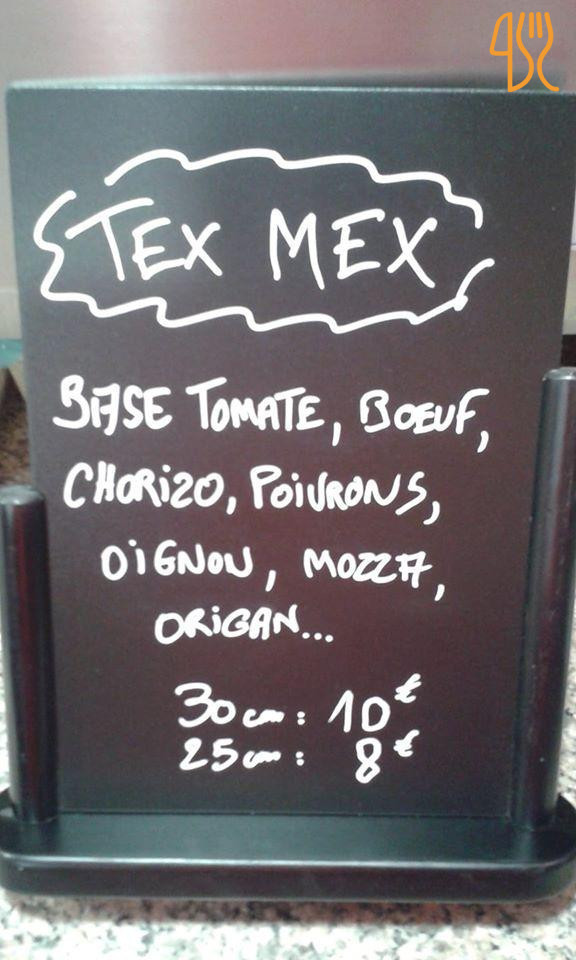 TEX MEX
BASE TOMATE, BOEUF,
CHORIZO, POIVRONS,
OIGNON, MOZZA,
ORIGAN...
30cm: 10€
25cm: 8€